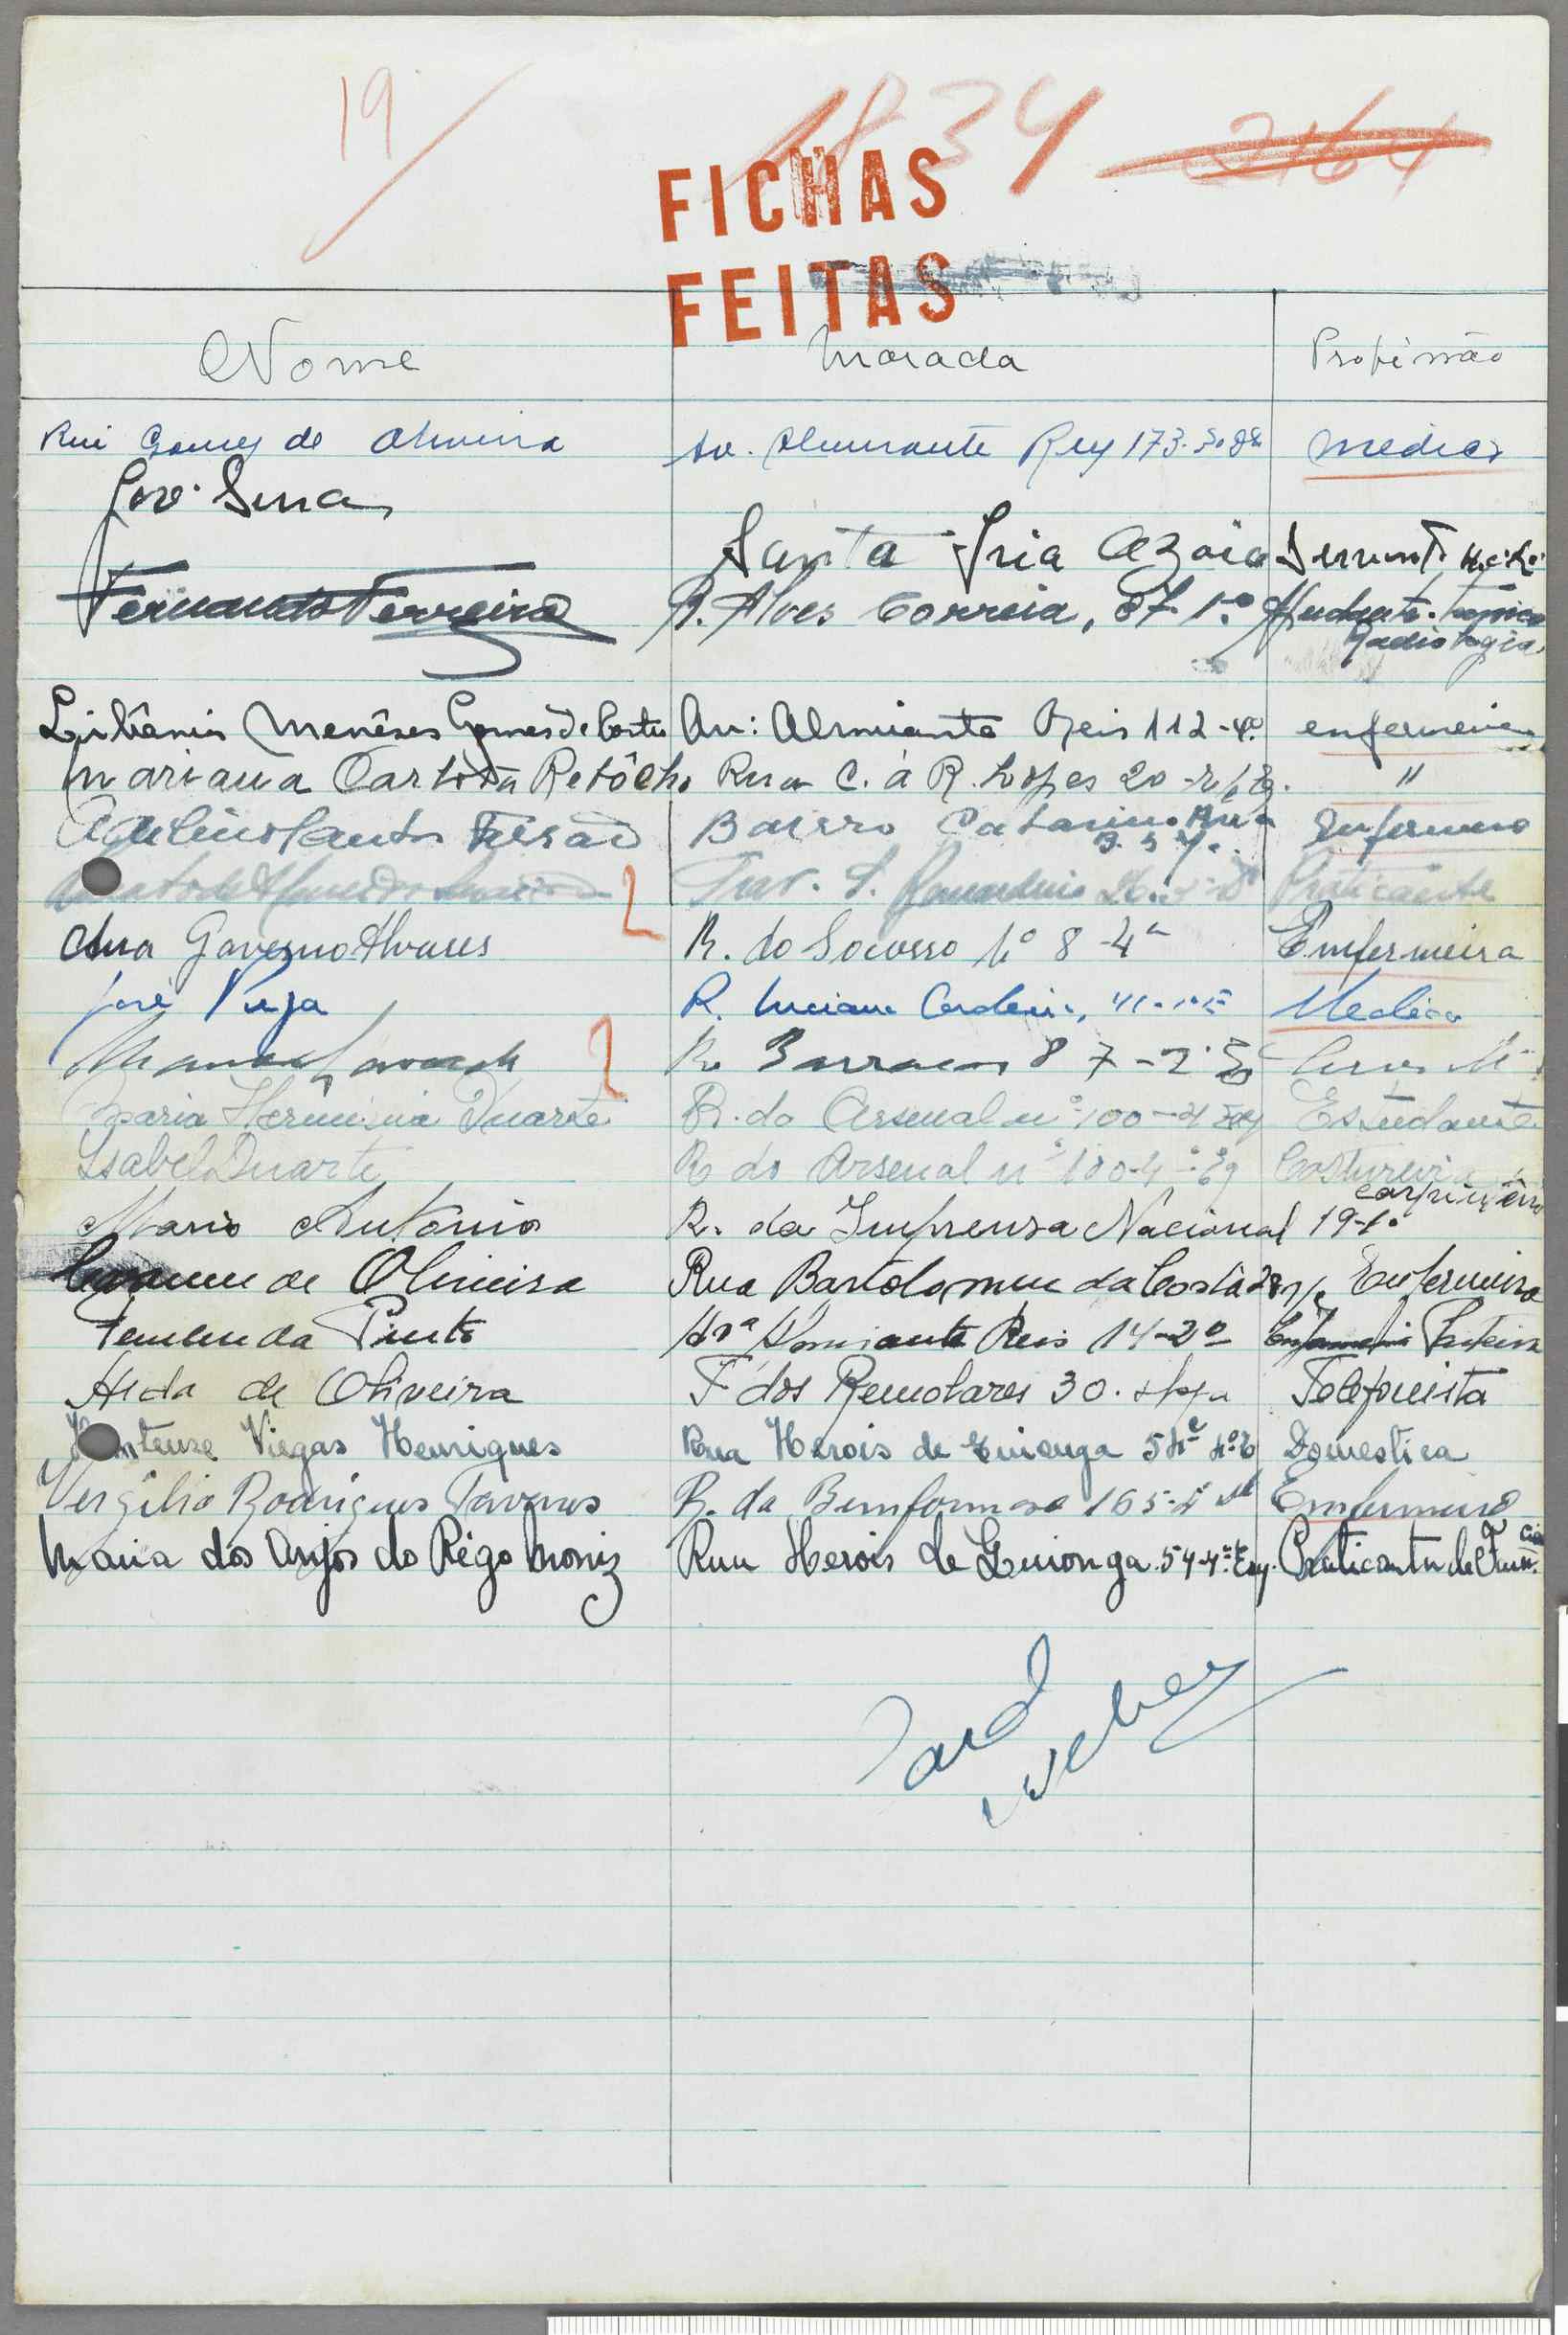 19
1834 2164
FICHAS
FEITAS
Nome Morada Profissão
Rui Gomes de Oliveira Av. Almirante Reis 173. 3º Dº Medico
José Serra
Santa Iria Azoia Servente
Fernando Ferreira R. Alves Correia, 87-1º Ajudante. tecnico
Radiologia
Libânia Menêses Gomes de Av: Almirante Reis 112-4º enfermeira
Mariana Carlota Retôcho Rua C. á R. Lopes 20-r/c Eq. "
Aquilino Santos Bairro Catarino Rua Enfermeiro
B. 57.
Trav. S. Praticante
Ana Governo Alvares R. do Socorro Nº 8-4º Enfermeira
José Puga R. Luciano Cordeiro, Medico
Manuel R. Barracas 87-2º E
Maria Hermínia Duarte R. do Arsenal nº 100-4 Esq Estudante
Isabel Duarte R do Arsenal nº 100-4º Eq Costureira
carpinteiro
Mario Antonio R. da Imprensa Nacional 19-1º
Carmen de Oliveira Rua Bartolomeu da Costa 28 r/c Enfermeira
Pinto Avª Almirante Reis 14-2º Parteira
Alda de Oliveira T dos Remolares 30. s/loja Telefonista
Hortense Viegas Henriques Rua Herois de Quionga 54 4º E Domestica
Vergilio Rodrigues Tavares R. do Bemformoso 165-2º Enfermeiro
Maria dos Anjos do Rêgo Moniz Rua Herois de Quionga 54-4º Esq. Praticante de Farmcia